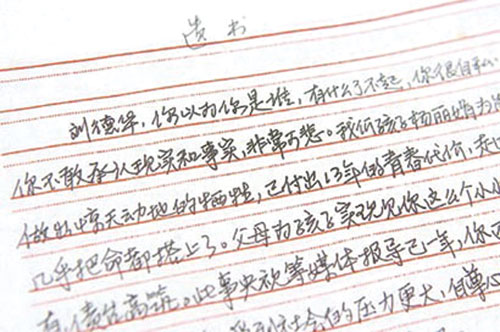 遗书
刘德华，你以为你是谁，有什么了不起，你很自私
你不敢承认现实和事实，非常可悲。我们孩子杨丽娟为
做出惊天动地的牺牲，已付出13年的青春代价，
几乎把命都搭上了。父母为孩子实现见你这么个小小
债台高筑。此事央视等媒体报导已一年，你
社会的压力更大，自尊